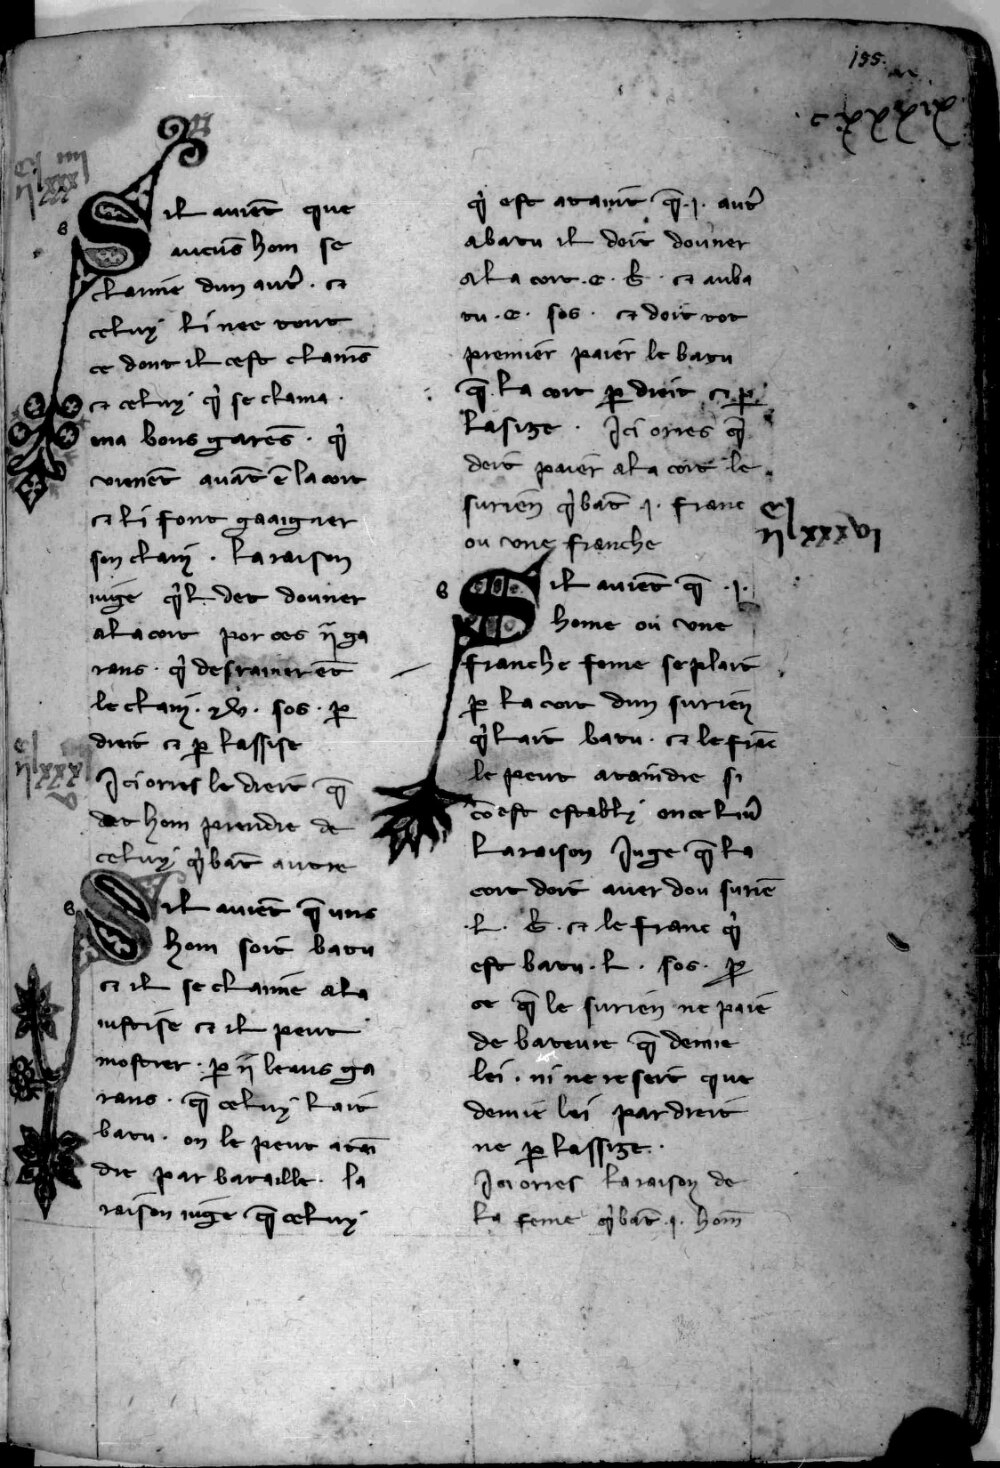 155.
Sil auiēt que
aucūs hom se
clamme dun autr̄ . ⁊
celuy ki nee tout
ce dont il cest clamēs
⁊ celuy q̇ se clama .
ma bons garēs . q̇
vienēt auāt ē la cort
⁊ li font gaaigner
son claim . La raison
iuge q̇l det donner
a la cort por ces .ii. ga
rans . q̇ desrainerēt
le claim . xv . sos . ꝑ
dreit ⁊ ꝑ lassise
Ici orres le dreit q̄
det hom prendre de
celuy q̇ bat autre
Sil auiēt q̄ uns
hom soit batu
⁊ il se clamme a la
iustise ⁊ il peut
mostrer . ꝑ .ii. leaus ga
rans . q̄ celuy lait
batu . ou le peut atai
dre par bataille . la
raison iuge q̄ celuy
q̇ est ataint q̄ .i. autr̄
a batu il deit douner
a la cort . c . b̄ . ⁊ au ba
tu . c . sos . ⁊ doit tot
premier paier le batu
q̄ la cort ꝑ dreit ⁊ ꝑ
lasize . Ici orres q̄
deit paier a la cort le
surien q̇ bat .i. franc
ou une franche
lxxxvi
Sil auiēt q̄ .i.
home ou une
franche feme se plait
ꝑ la cort dun surien
q̇ lait batu . ⁊ le frāc
le peut ataindre si
cō est estably en ce liur̄
La raison Iuge q̄ la
cort doit auer dou suriē
.L. b̄ . ⁊ le franc q̇
est batu . L . sos . ꝑ
ce q̄ le surien ne paie
de bateure q̄ demie
lei . ni ne resert que
demie lei par dreit
ne ꝑ lassize .
Ici orres la raison de
la feme q̇ bat .i. hom̄